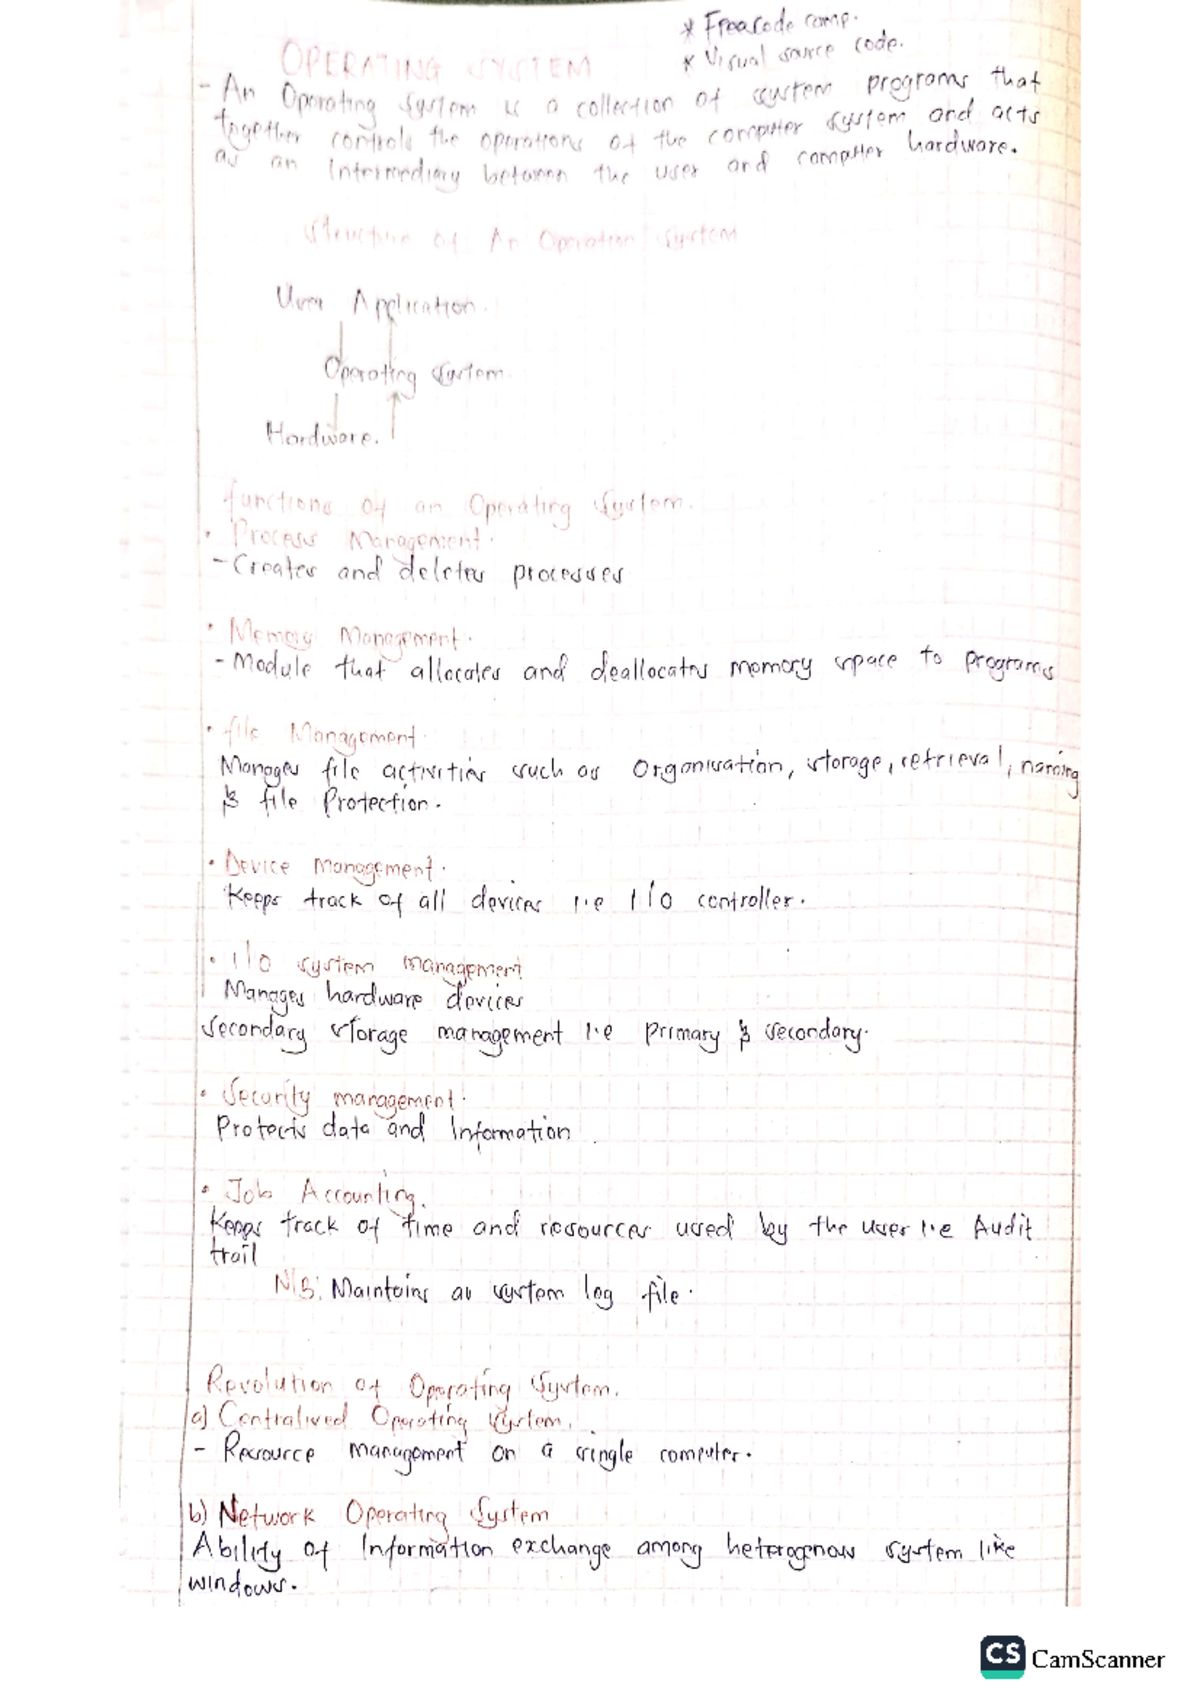 * Freecode camp.
* Visual source code.
OPERATING SYSTEM
- An Operating System is a collection of system programs that
together controls the operations of the computer system and acts
as an Intermediary between the user and computer hardware.
Structure of An Operation System
User Application.
Operating System.
Hardware.
functions of an Operating System.
• Process Management.
- Creates and deletes processes
• Memory Management.
- Module that allocates and deallocates memory space to programs
• file Management
Manages file activities such as Organisation, storage, retrieval, naming
& file Protection.
• Device Management.
Keeps track of all devices i.e I/O controller.
• I/O system management
Manages hardware devices
Secondary storage management i.e primary & secondary.
• Security management.
Protects data and Information
• Job Accounting.
Keeps track of time and resources used by the user i.e Audit
trail
N/B: Maintains as system log file.
Revolution of Operating System.
a) Centralised Operating System.
- Resource management on a single computer.
b) Network Operating System
Ability of Information exchange among heterogenous system like
windows.
CS CamScanner